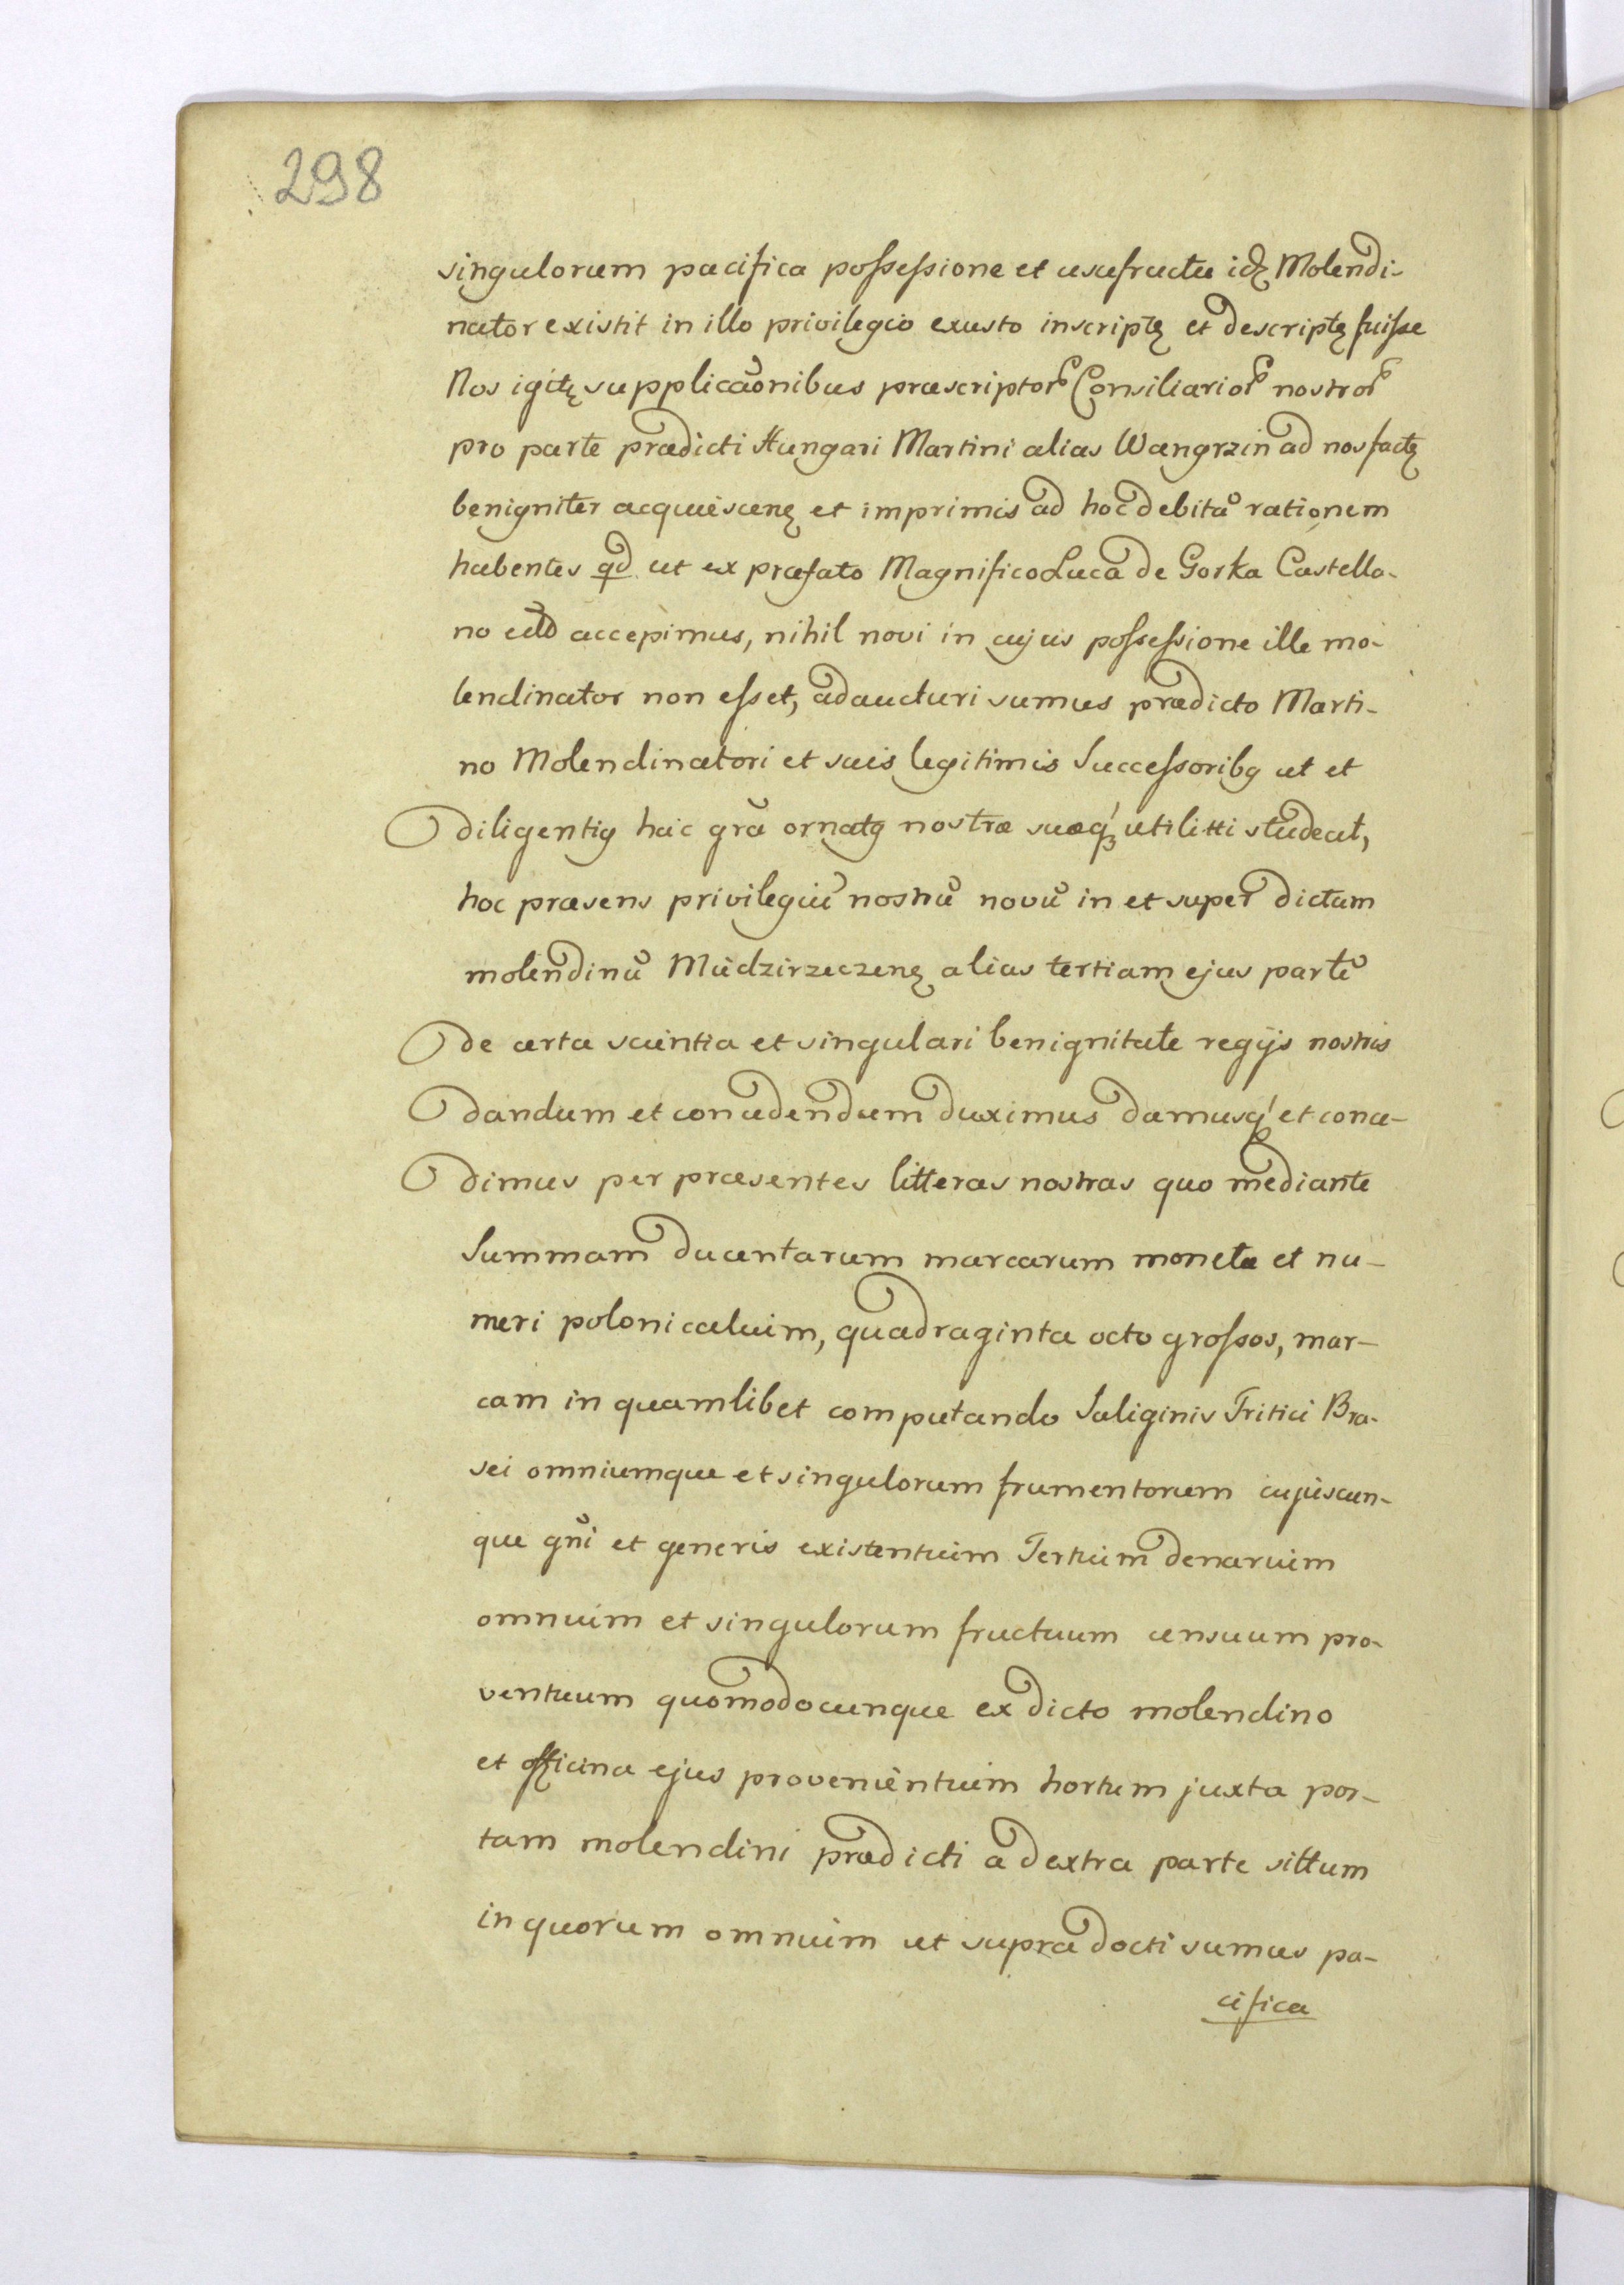 298
singulorum pacifica possessione et usufructu idꝫ Molendi-
nator existit in illo privilegio exusto inscriptꝫ et descriptꝫ fuisse
Nos igitꝫ supplicãonibus præscriptorꝫ Consiliariorꝫ nostrorꝫ
pro parte prædicti Hungari Martini alias Wangrzin ad nos factꝫ
benigniter acquiescenꝫ et imprimis ad hoc debitũ rationem
habentes qd ut ex præfato Magnifico Luca de Gorka Castella-
no accepimus, nihil novi in cujus possessione ille mo-
lendinator non esset, adaucturi sumus prædicto Marti-
no Molendinatori et suis legitimis Successoribꝫ ut et
diligentiꝫ hac grã ornatꝫ nostræ suæqꝫ utilitti studeat,
hoc præsens privilegiũ nostrũ novũ in et super dictam
molendinũ Miedzirzeczenꝫ alias tertiam ejus partẽ
de certa scientia et singulari benignitate regijs nostris
dandum et concedendum duximus damusqꝫ et conce-
dimus per præsentes litteras nostras quo mediante
Summam ducentarum marcarum moneta et nu-
meri polonicalium, quadraginta octo grossos, mar-
cam in quamlibet computando Saliginis Tritici Bra-
sei omniumque et singulorum frumentorum cujuscun-
que gñi et generis existentium Tertium denarium
omnium et singulorum fructuum censuum pro-
ventuum quomodocunque ex dicto molendino
et officina ejus provenientium hortum juxta por-
tam molendini prædicti a dextra parte sittum
in quorum omnium ut supra docti sumus pa-
cifica